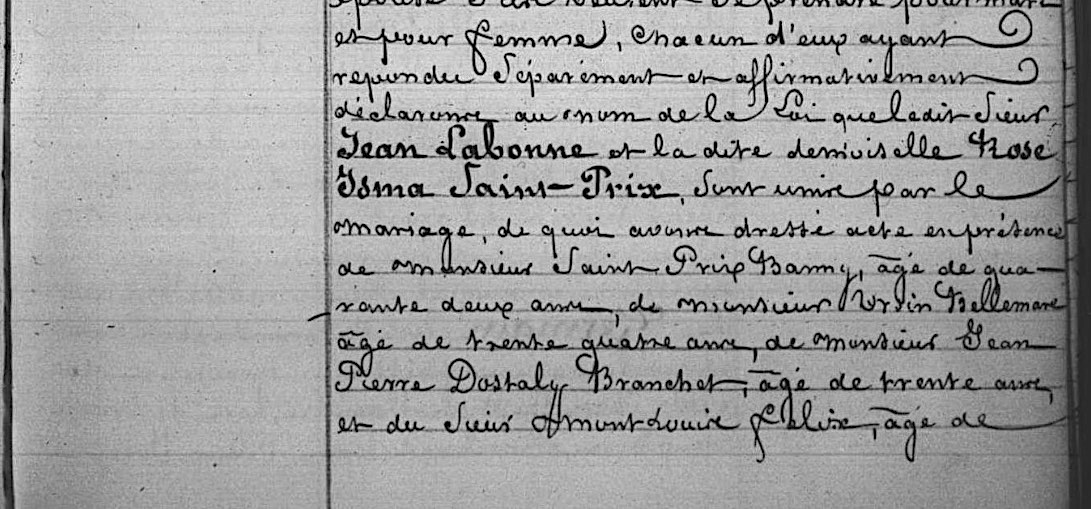 et pour femme, chacun d'eux ayant
repondu Séparément et affirmativement
déclarons au nom de la Loi que ledit Sieur
Jean Labonne et la dite demoiselle Rose
Isma Saint-Prix, sont unis par le
mariage, de quoi avons dressé acte en présence
de monsieur Saint Prix Banny, âgé de qua-
rante deux ans, de monsieur Ursin Bellemare
âgé de trente quatre ans, de monsieur Jean
Pierre Dostaly Branchet, âgé de trente ans,
et du Sieur Montlouis Félix, âgé de